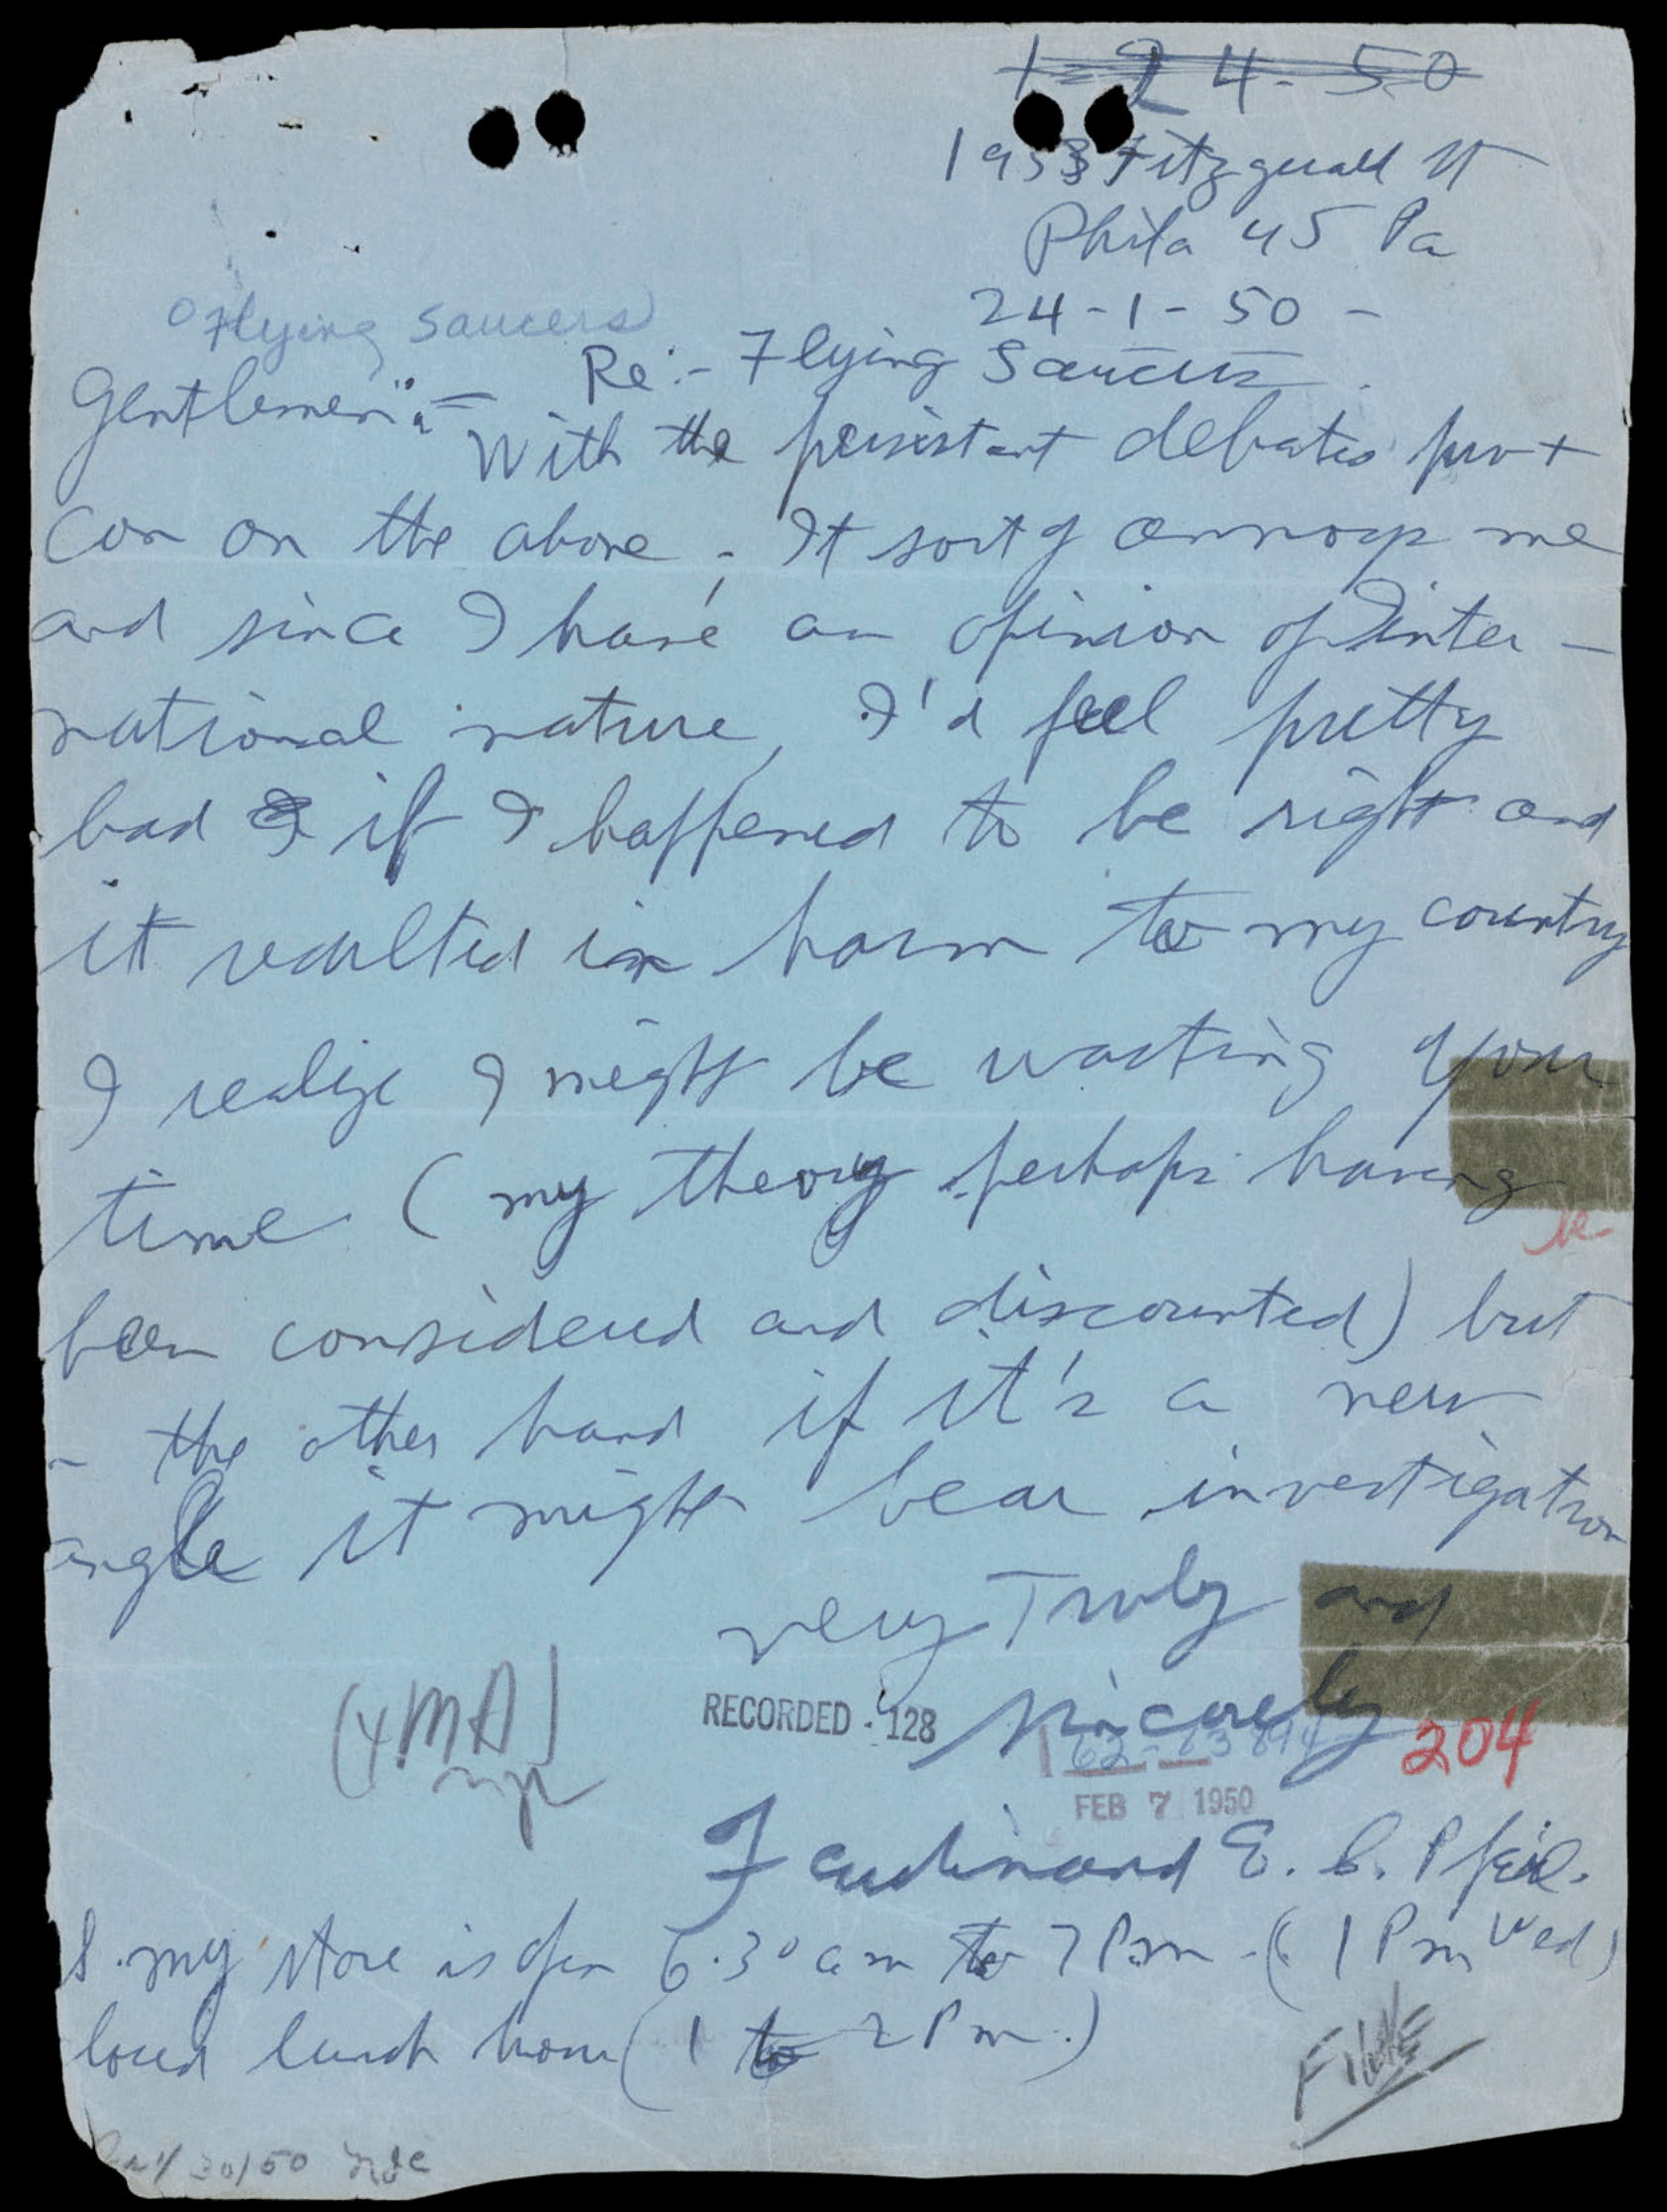 1-24-50
1953 Fitzgerald St
Phila 45 Pa
24-1-50 -
Flying Saucers
Re:- Flying Saucers.
Gentlemen:-
With the persistant debates pro +
Con on the above - It sort of annoys me
and since I have an opinion of inter-
national nature, I'd feel pretty
bad if I happened to be right and
it resulted in harm to my country
I realize I might be wasting your
time (my theory perhaps having
been considered and discounted) but
the other hand if it's a new
angle it might bear investigation
very Truly and
sincerely
(4MA)
RECORDED - 128
62-83894
204
FEB 7 1950
Ferdinand E. C. Pfeil.
S. my store is open 6.30 am to 7 Pm - (1 Pm Wed)
losed lunch hour (1 to 2 Pm.)
FILE
30/50